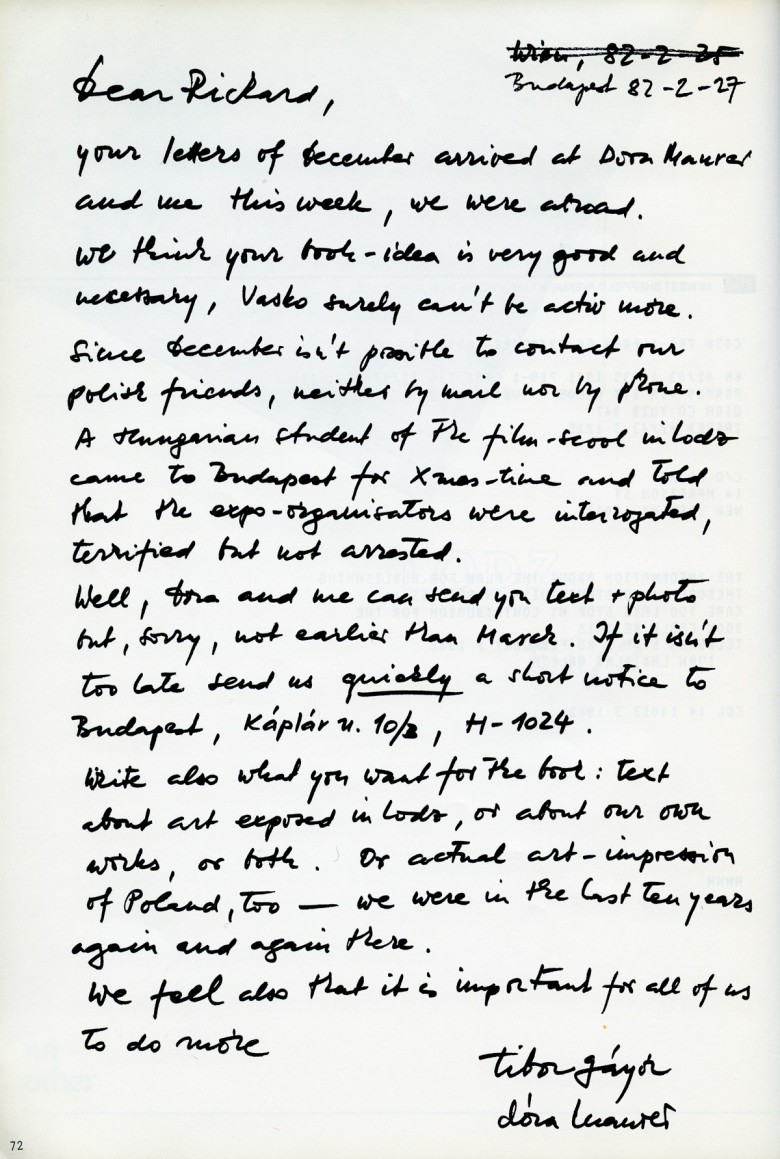 Wien, 82-2-25
Budapest 82-2-27
Dear Rickard,
your letters of December arrived at Dora Maurer
and me this week, we were abroad.
We think your book-idea is very good and
necessary, Vasko surely can't be activ more.
Since December isn't possible to contact our
polish friends, neither by mail nor by phone.
A Hungarian student of the film-scool in Lodz
came to Budapest for Xmas-time and told
that the expo-organisators were interrogated,
terrified but not arrested.
Well, Dora and me can send you text + photo
but, sorry, not earlier than March. If it isn't
too late send us quickly a short notice to
Budapest, Káplár u. 10/B, H-1024.
Write also what you want for the book: text
about art exposed in Lodz, or about our own
works, or both. Or actual art-impression
of Poland, too — we were in the last ten years
again and again there.
We feel also that it is important for all of us
to do more
tibor gáyor
dóra maurer
72